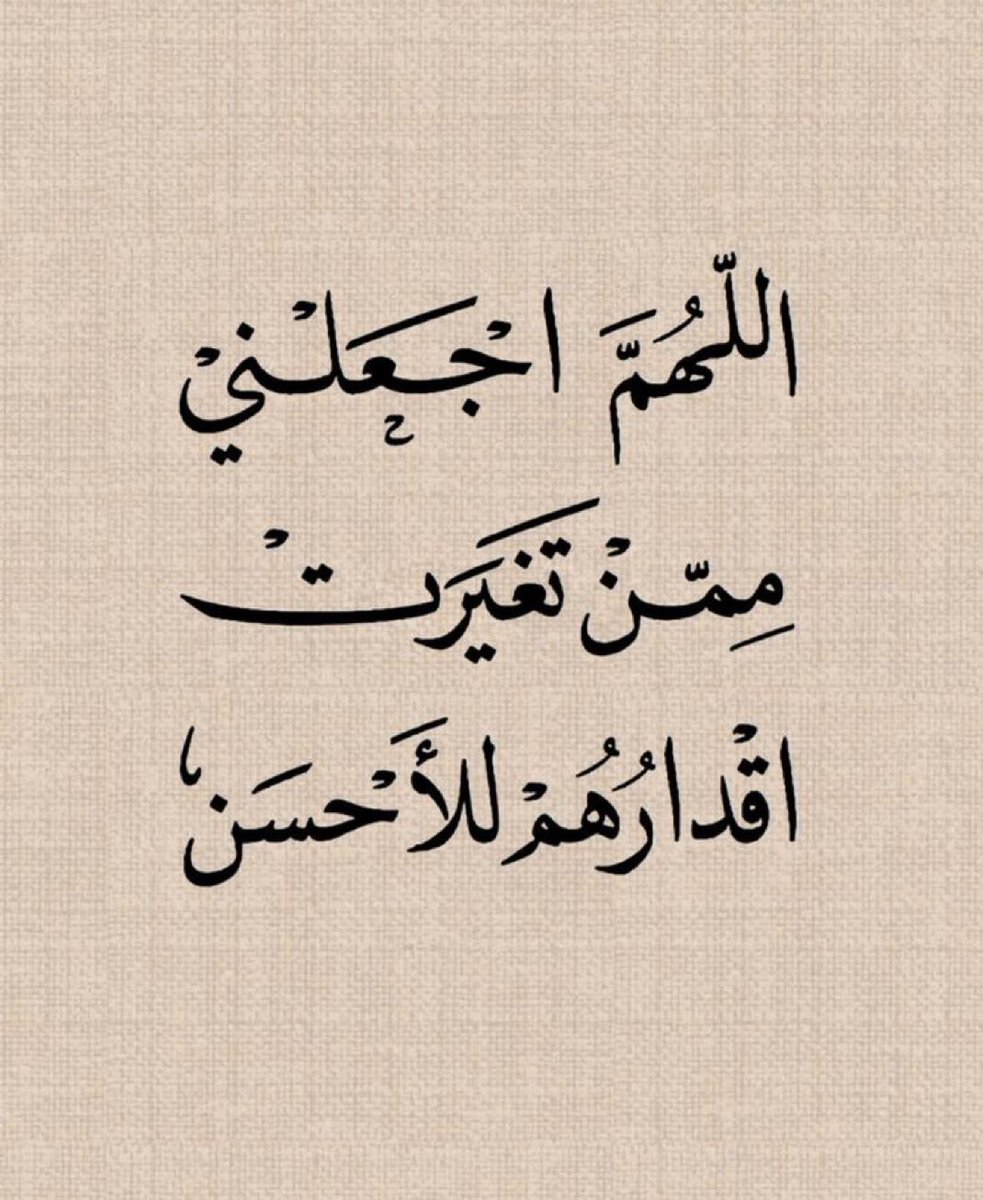 اللّهُمَّ اجْعَلْنيْ
مِمّنْ تَغيَرتْ
اقْدارُهُمْ للأَحْسَن